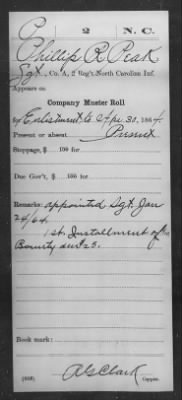 P 2 N.C.
Phillip R. Peak
Sgt., Co. A, 2 Reg't North Carolina Inf.
Appears on
Company Muster Roll
of Enlistment to Apr. 30, 1864.
Present or absent Present
Stoppage, $ 100 for
Due Gov't, $ 100 for
Remarks: appointed Sgt. Jan
24/64.
1st. Installment of
Bounty due 25.
Book mark:
(858)
A G Clark
Copyist.